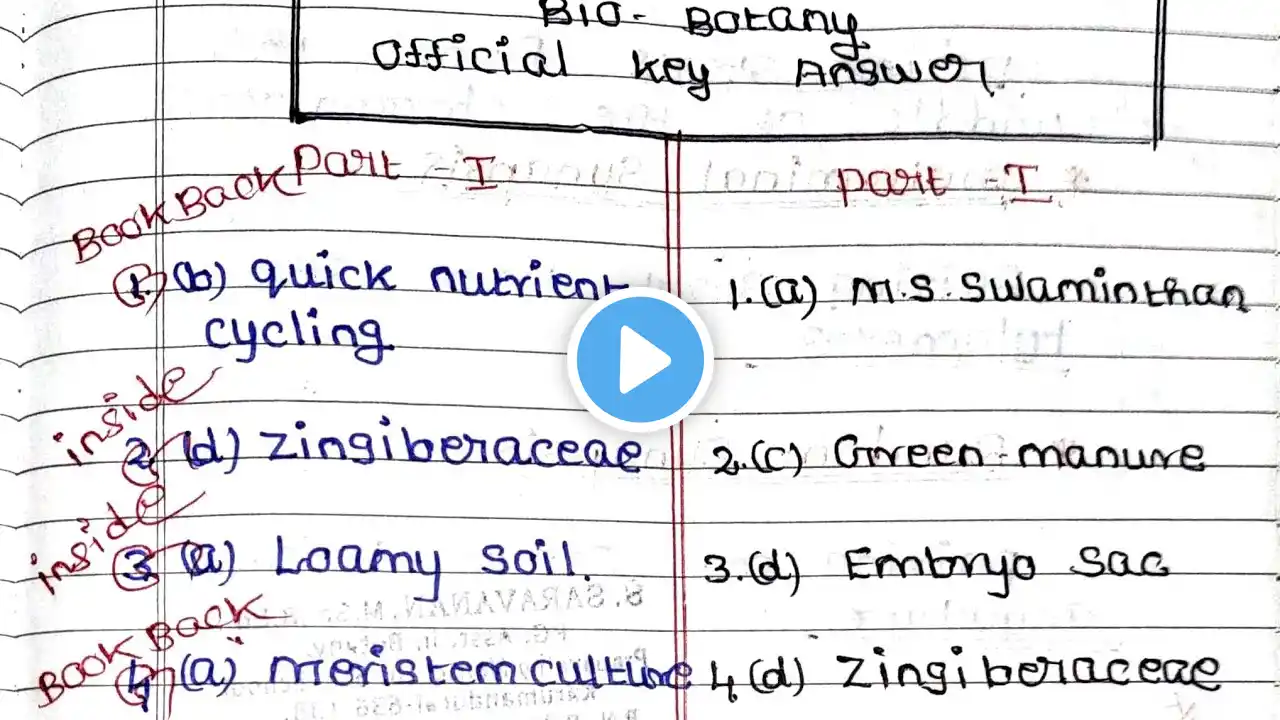 Bio - Botany
Official Key Answer
Part - I
Book Back
1. (b) quick nutrient
cycling.
inside
2. (d) Zingiberaceae
inside
3. (a) Loamy soil.
Book Back
4. (a) Meristem culture
Part - I
1. (a) M.S. Swaminthan
2. (c) Green - manure
3. (d) Embryo Sac
4. (d) Zingiberaceae